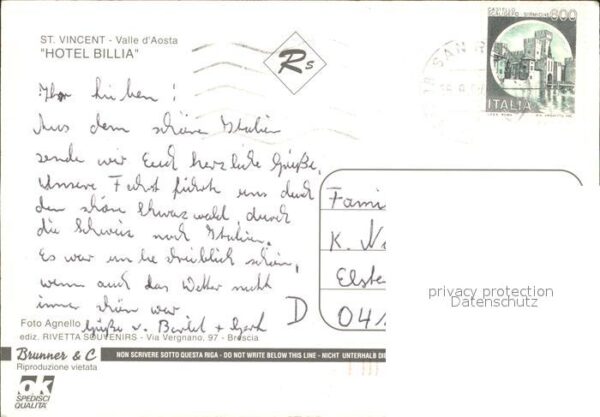 ST. VINCENT - Valle d'Aosta
"HOTEL BILLIA"
Rs
CASTELLO
SCALIGERO - SIRMIONE
800
ITALIA
SAN R
Ihr Lieben!
Aus dem schöne Italien
sende wir Euch herzliche Grüße.
Unsere Fahrt führte uns durch
den schöne Schwarzwald, durch
die Schweiz nach Italien.
Es war unbeschreiblich schön,
wenn auch das Wetter nicht
immer schön war
Grüße v. Bertel +
Fami
K. N
Elste
D 04
privacy protection
Datenschutz
Foto Agnello
ediz. RIVETTA SOUVENIRS - Via Vergnano, 97 - Brescia
Brunner & C
NON SCRIVERE SOTTO QUESTA RIGA - DO NOT WRITE BELOW THIS LINE - NICHT UNTERHALB DIE
Riproduzione vietata
ok
SPEDISCI
QUALITÀ